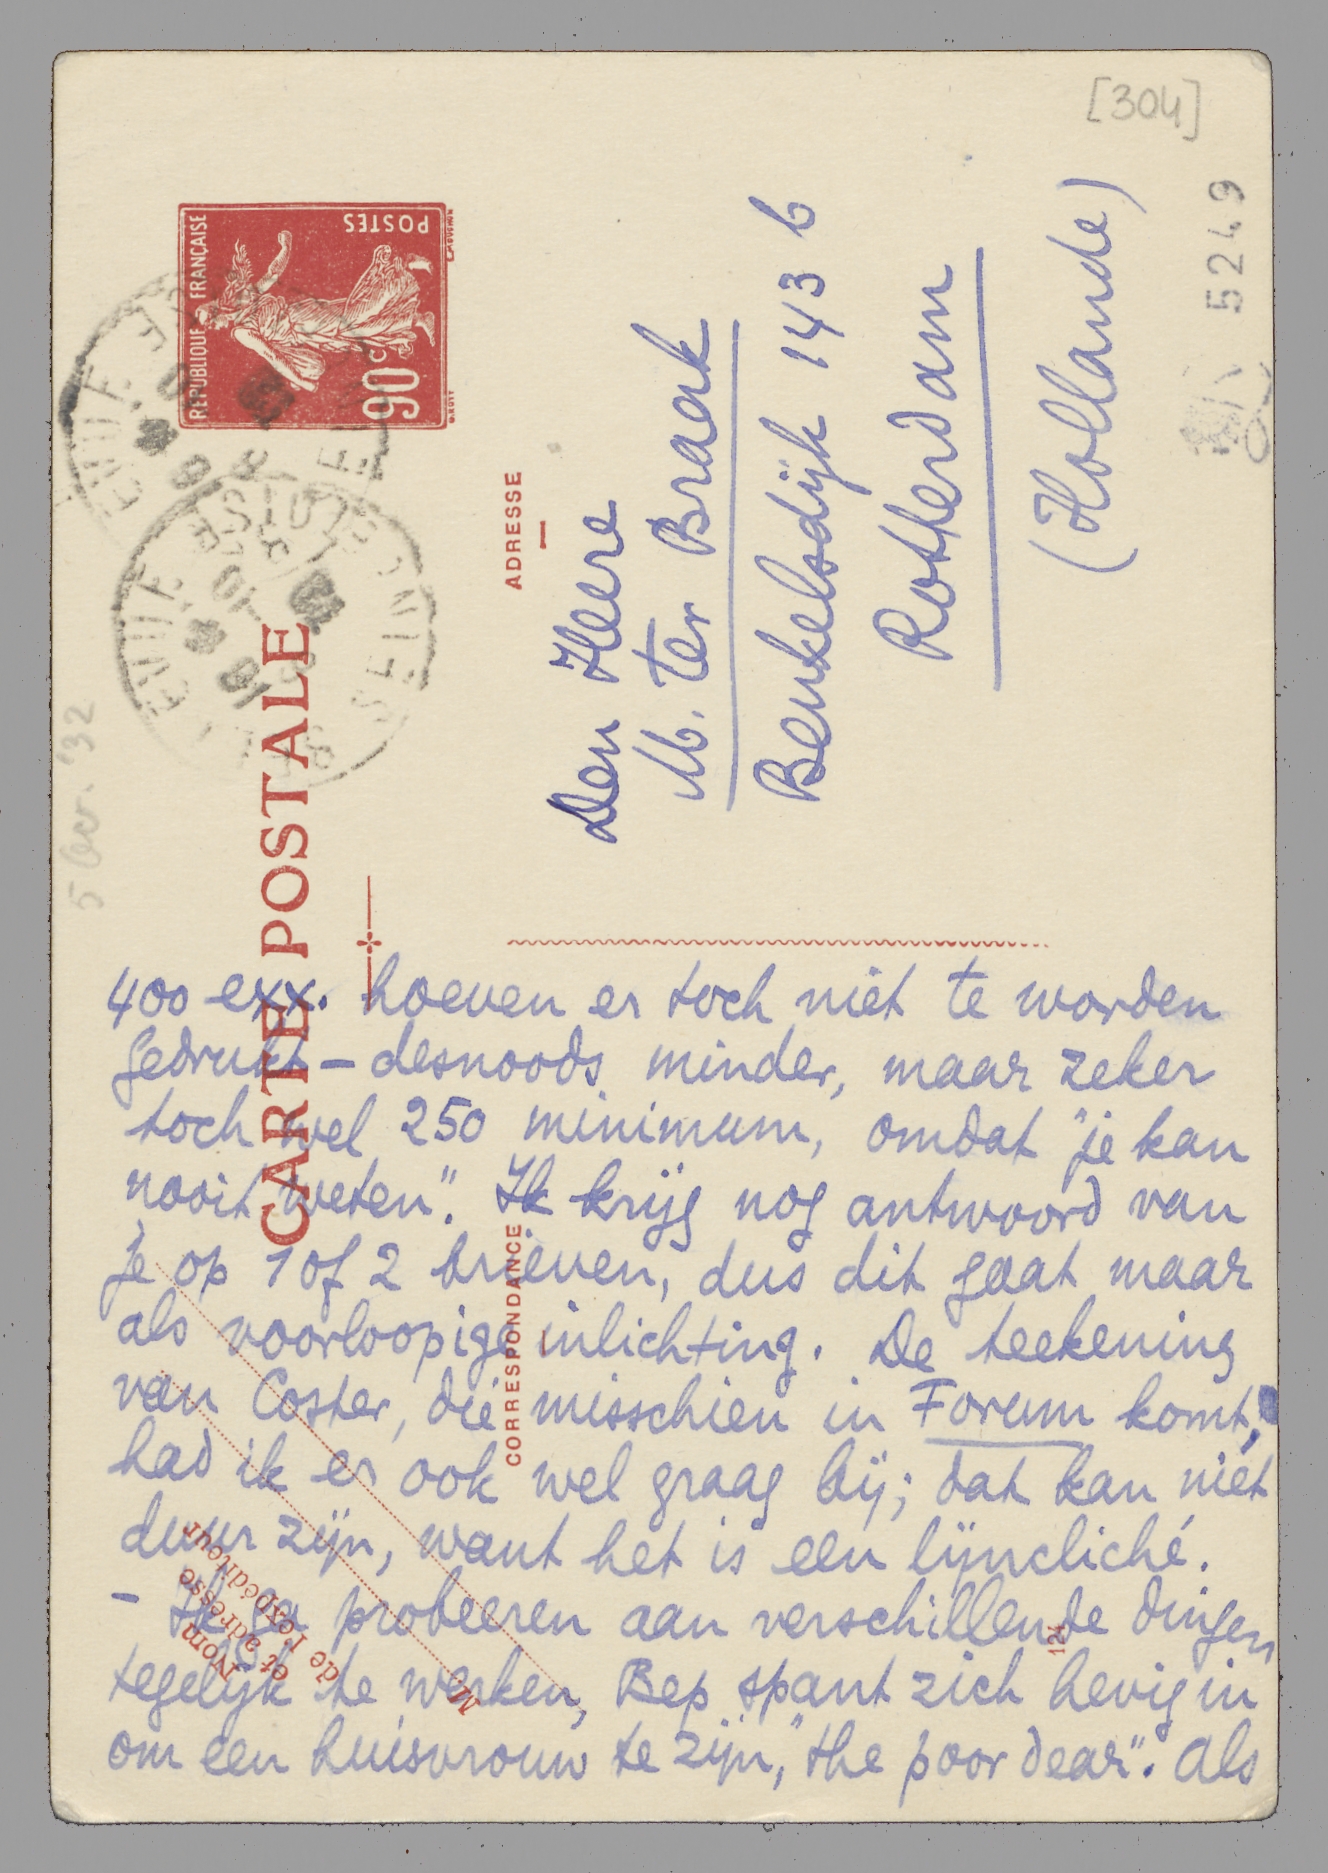 [304]
5249
5 '32
RÉPUBLIQUE FRANÇAISE
POSTES
90c
CARTE POSTALE
ADRESSE
Den Heere
M. ter Braak
Beukelsdijk 143 b
Rotterdam
(Hollande)
CORRESPONDANCE
400 exx. hoeven er toch niet te worden
gedrukt – desnoods minder, maar zeker
toch wel 250 minimum, omdat "je kan
nooit weten". Ik krijg nog antwoord van
je op 1 of 2 brieven, dus dit gaat maar
als voorloopige inlichting. De teekening
van Coster, die misschien in Forum komt,
had ik er ook wel graag bij; dat kan niet
duur zijn, want het is een lijncliché.
– Ik ga probeeren aan verschillende dingen
tegelijk te werken, Bep spant zich hevig in
om een huisvrouw te zijn, "the poor dear". Als
Nom
et adresse
de l'expéditeur
M
124